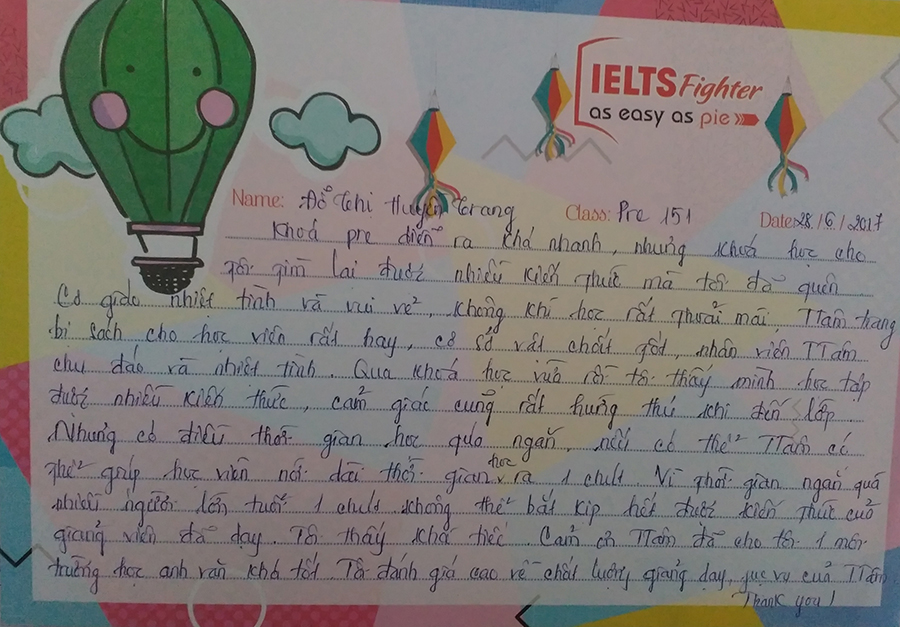 IELTS Fighter
as easy as pie
Name: Đỗ Thị Huyền Trang Class: Pre 151 Date: 28/6/2017
Khoá pre diễn ra khá nhanh, nhưng khoá học cho
tôi tìm lại được nhiều kiến thức mà tôi đã quên
Cô giáo nhiệt tình và vui vẻ, không khí học rất thoải mái, TTâm trang
bị sách cho học viên rất hay, cơ sở vật chất tốt, nhân viên TTâm
chu đáo và nhiệt tình. Qua khoá học vừa rồi tôi thấy mình học tập
được nhiều kiến thức, cảm giác cũng rất hứng thú khi đến lớp.
Nhưng có điều thời gian học quá ngắn, nếu có thể TTâm có
thể giúp học viên nới dài thời gian học ra 1 chút. Vì thời gian ngắn quá
nhiều người lớn tuổi 1 chút không thể bắt kịp hết được kiến thức của
giảng viên đã dạy. Tôi thấy khá tiếc. Cảm ơn TTâm đã cho tôi 1 môi
trường học anh văn khá tốt. Tôi đánh giá cao về chất lượng giảng dạy, phục vụ của TTâm
Thank you!